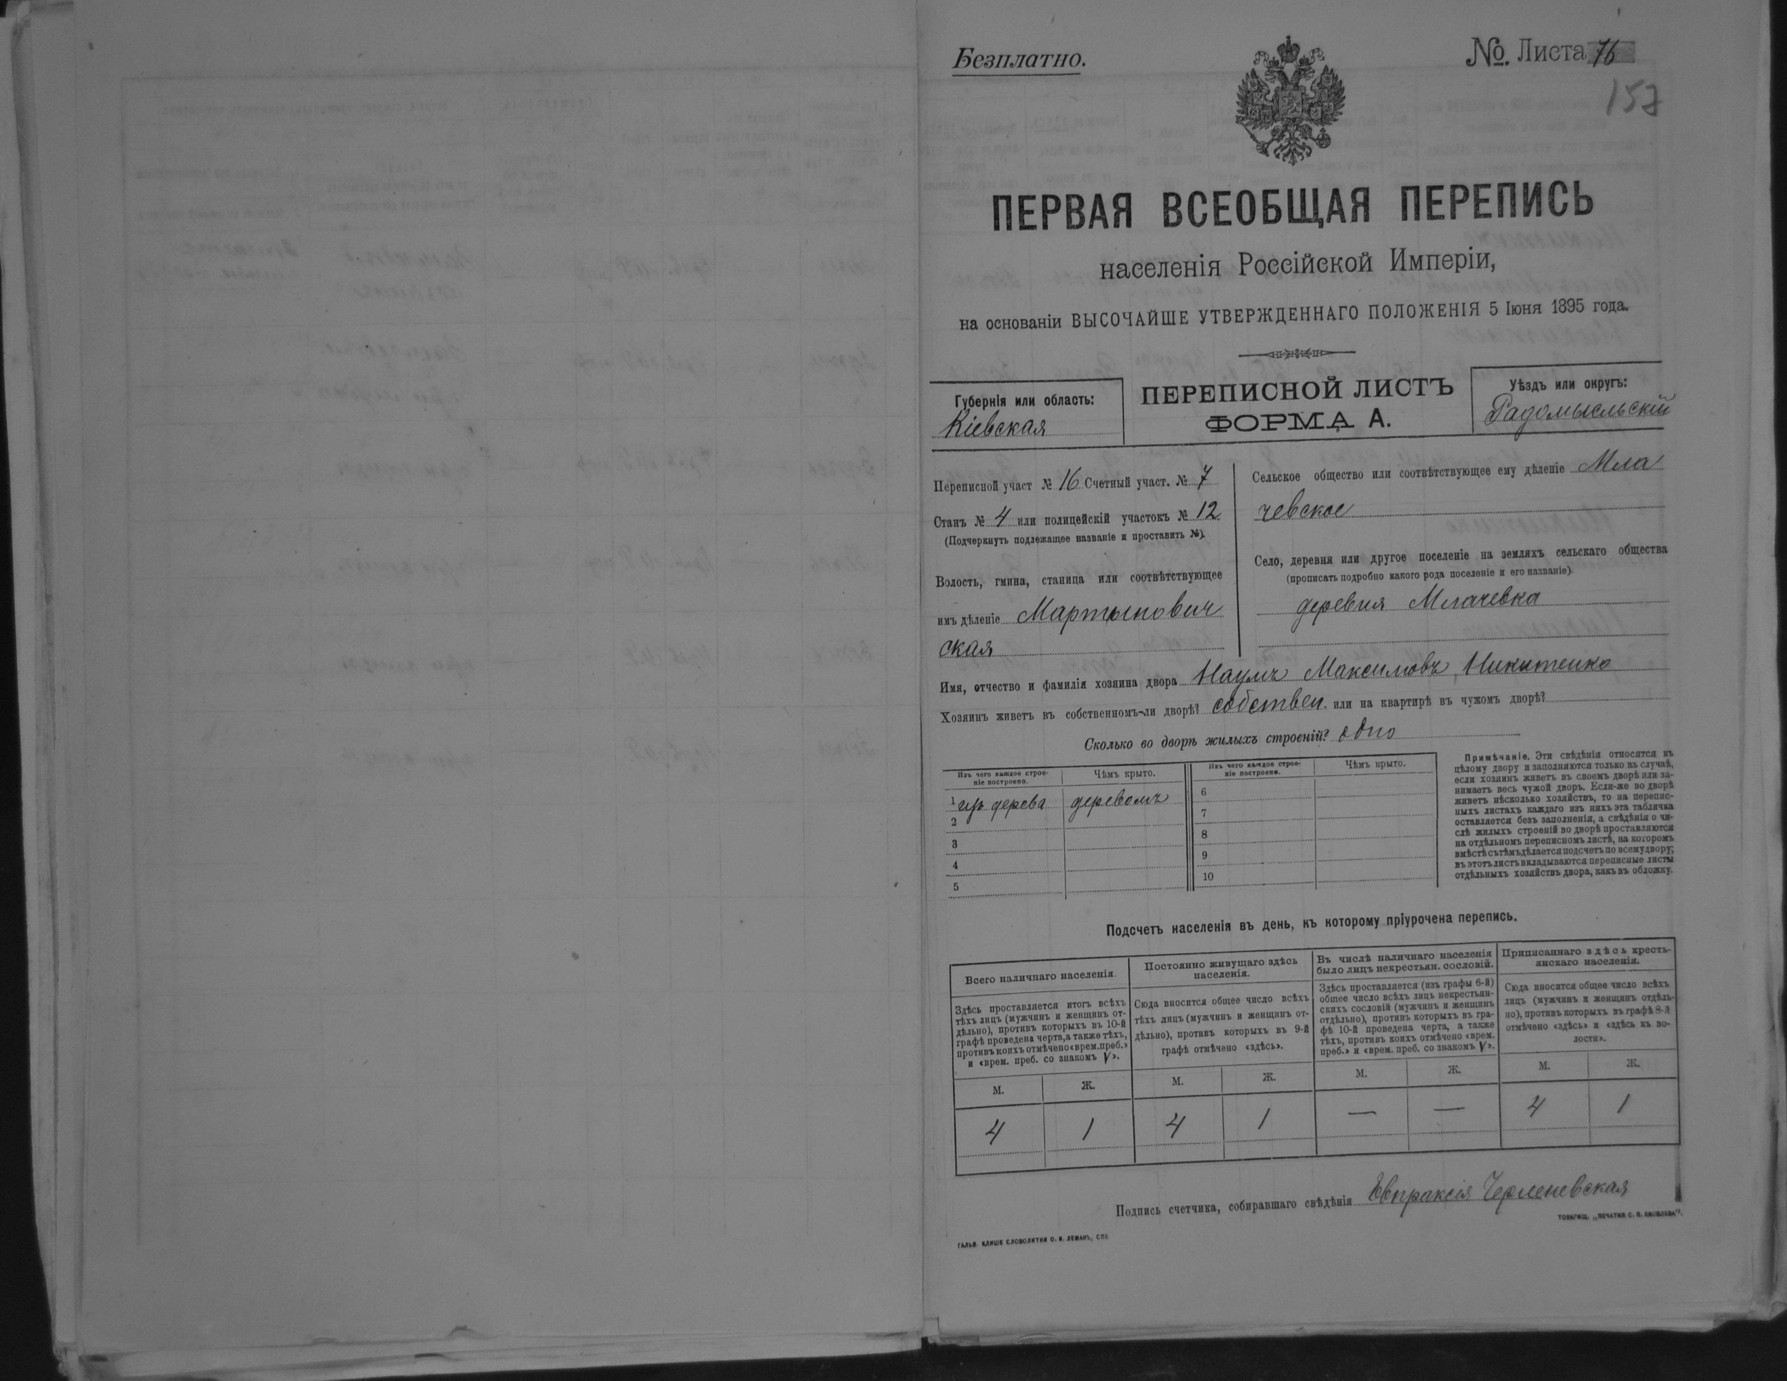 Безплатно.
№. Листа 76
157
ПЕРВАЯ ВСЕОБЩАЯ ПЕРЕПИСЬ
населенія Россійской Имперіи,
на основаніи ВЫСОЧАЙШЕ УТВЕРЖДЕННАГО ПОЛОЖЕНІЯ 5 Іюня 1895 года.
Губернія или область:
Кіевская
ПЕРЕПИСНОЙ ЛИСТЪ
ФОРМА А.
Уѣздъ или округъ:
Радомысльскій
Переписной участ № 16 Счетный участ. № 7
Станъ № 4 или полицейскій участокъ № 12
(Подчеркнуть подлежащее названіе и проставить №).
Волость, гмина, станица или соотвѣтствующее
имъ дѣленіе Мартынович
ская
Сельское общество или соотвѣтствующее ему дѣленіе Мла
чевское
Село, деревня или другое поселеніе на земляхъ сельскаго общества
(прописать подробно какого рода поселеніе и его названіе).
деревня Млачевка
Имя, отчество и фамилія хозяина двора Наумъ Максимовъ Никитенко
Хозяинъ живетъ въ собственномъ-ли дворѣ? собствен. или на квартирѣ въ чужомъ дворѣ?
Сколько во дворѣ жилыхъ строеній? одно
Изъ чего каждое строе-
ніе построено.
Чѣмъ крыто.
1 изъ дерева деревомъ
2
3
4
5
Изъ чего каждое строе-
ніе построено.
Чѣмъ крыто.
6
7
8
9
10
Примѣчаніе. Эти свѣдѣнія относятся къ
цѣлому двору и заполняются только въ случаѣ,
если хозяинъ живетъ въ своемъ дворѣ или за-
нимаетъ весь чужой дворъ. Если-же во дворѣ
живетъ нѣсколько хозяйствъ, то на перепис-
ныхъ листахъ каждаго изъ нихъ эта табличка
оставляется безъ заполненія, а свѣдѣнія о чи-
слѣ жилыхъ строеній во дворѣ проставляются
на отдѣльномъ переписномъ листѣ, на которомъ
вмѣстѣ съ тѣмъ дѣлается подсчетъ по всему двору;
въ этотъ листъ вкладываются переписные листы
отдѣльныхъ хозяйствъ двора, какъ въ обложку.
Подсчетъ населенія въ день, къ которому пріурочена перепись.
Всего наличнаго населенія.
Здѣсь проставляется итогъ всѣхъ
тѣхъ лицъ (мужчинъ и женщинъ от-
дѣльно), противъ которыхъ въ 10-й
графѣ проведена черта, а также тѣхъ,
противъ коихъ отмѣчено «врем. преб.»
и «врем. преб. со знакомъ V».
М. Ж.
4 1
Постоянно живущаго здѣсь
населенія.
Сюда вносится общее число всѣхъ
тѣхъ лицъ (мужчинъ и женщинъ от-
дѣльно), противъ которыхъ въ 9-й
графѣ отмѣчено «здѣсь».
М. Ж.
4 1
Въ числѣ наличнаго населенія
было лицъ некрестьян. сословій.
Здѣсь проставляется (изъ графы 6-й)
общее число всѣхъ лицъ некрестьян-
скихъ сословій (мужчинъ и женщинъ
отдѣльно), противъ которыхъ въ гра-
фѣ 10-й проведена черта, а также
тѣхъ, противъ коихъ отмѣчено «врем.
преб.» и «врем. преб. со знакомъ V».
М. Ж.
— —
Приписаннаго здѣсь кресть-
янскаго населенія.
Сюда вносится общее число всѣхъ
лицъ (мужчинъ и женщинъ отдѣль-
но), противъ которыхъ въ графѣ 8-й
отмѣчено «здѣсь» и «здѣсь въ во-
лости».
М. Ж.
4 1
Подпись счетчика, собиравшаго свѣдѣнія Евпраксія Черленевская
ГАЛЬВ. КЛИШЕ СЛОВОЛИТНИ О. И. ЛЕМАНЪ, СПБ
ТОВАРИЩ. „ПЕЧАТНЯ С. П. ЯКОВЛЕВА".